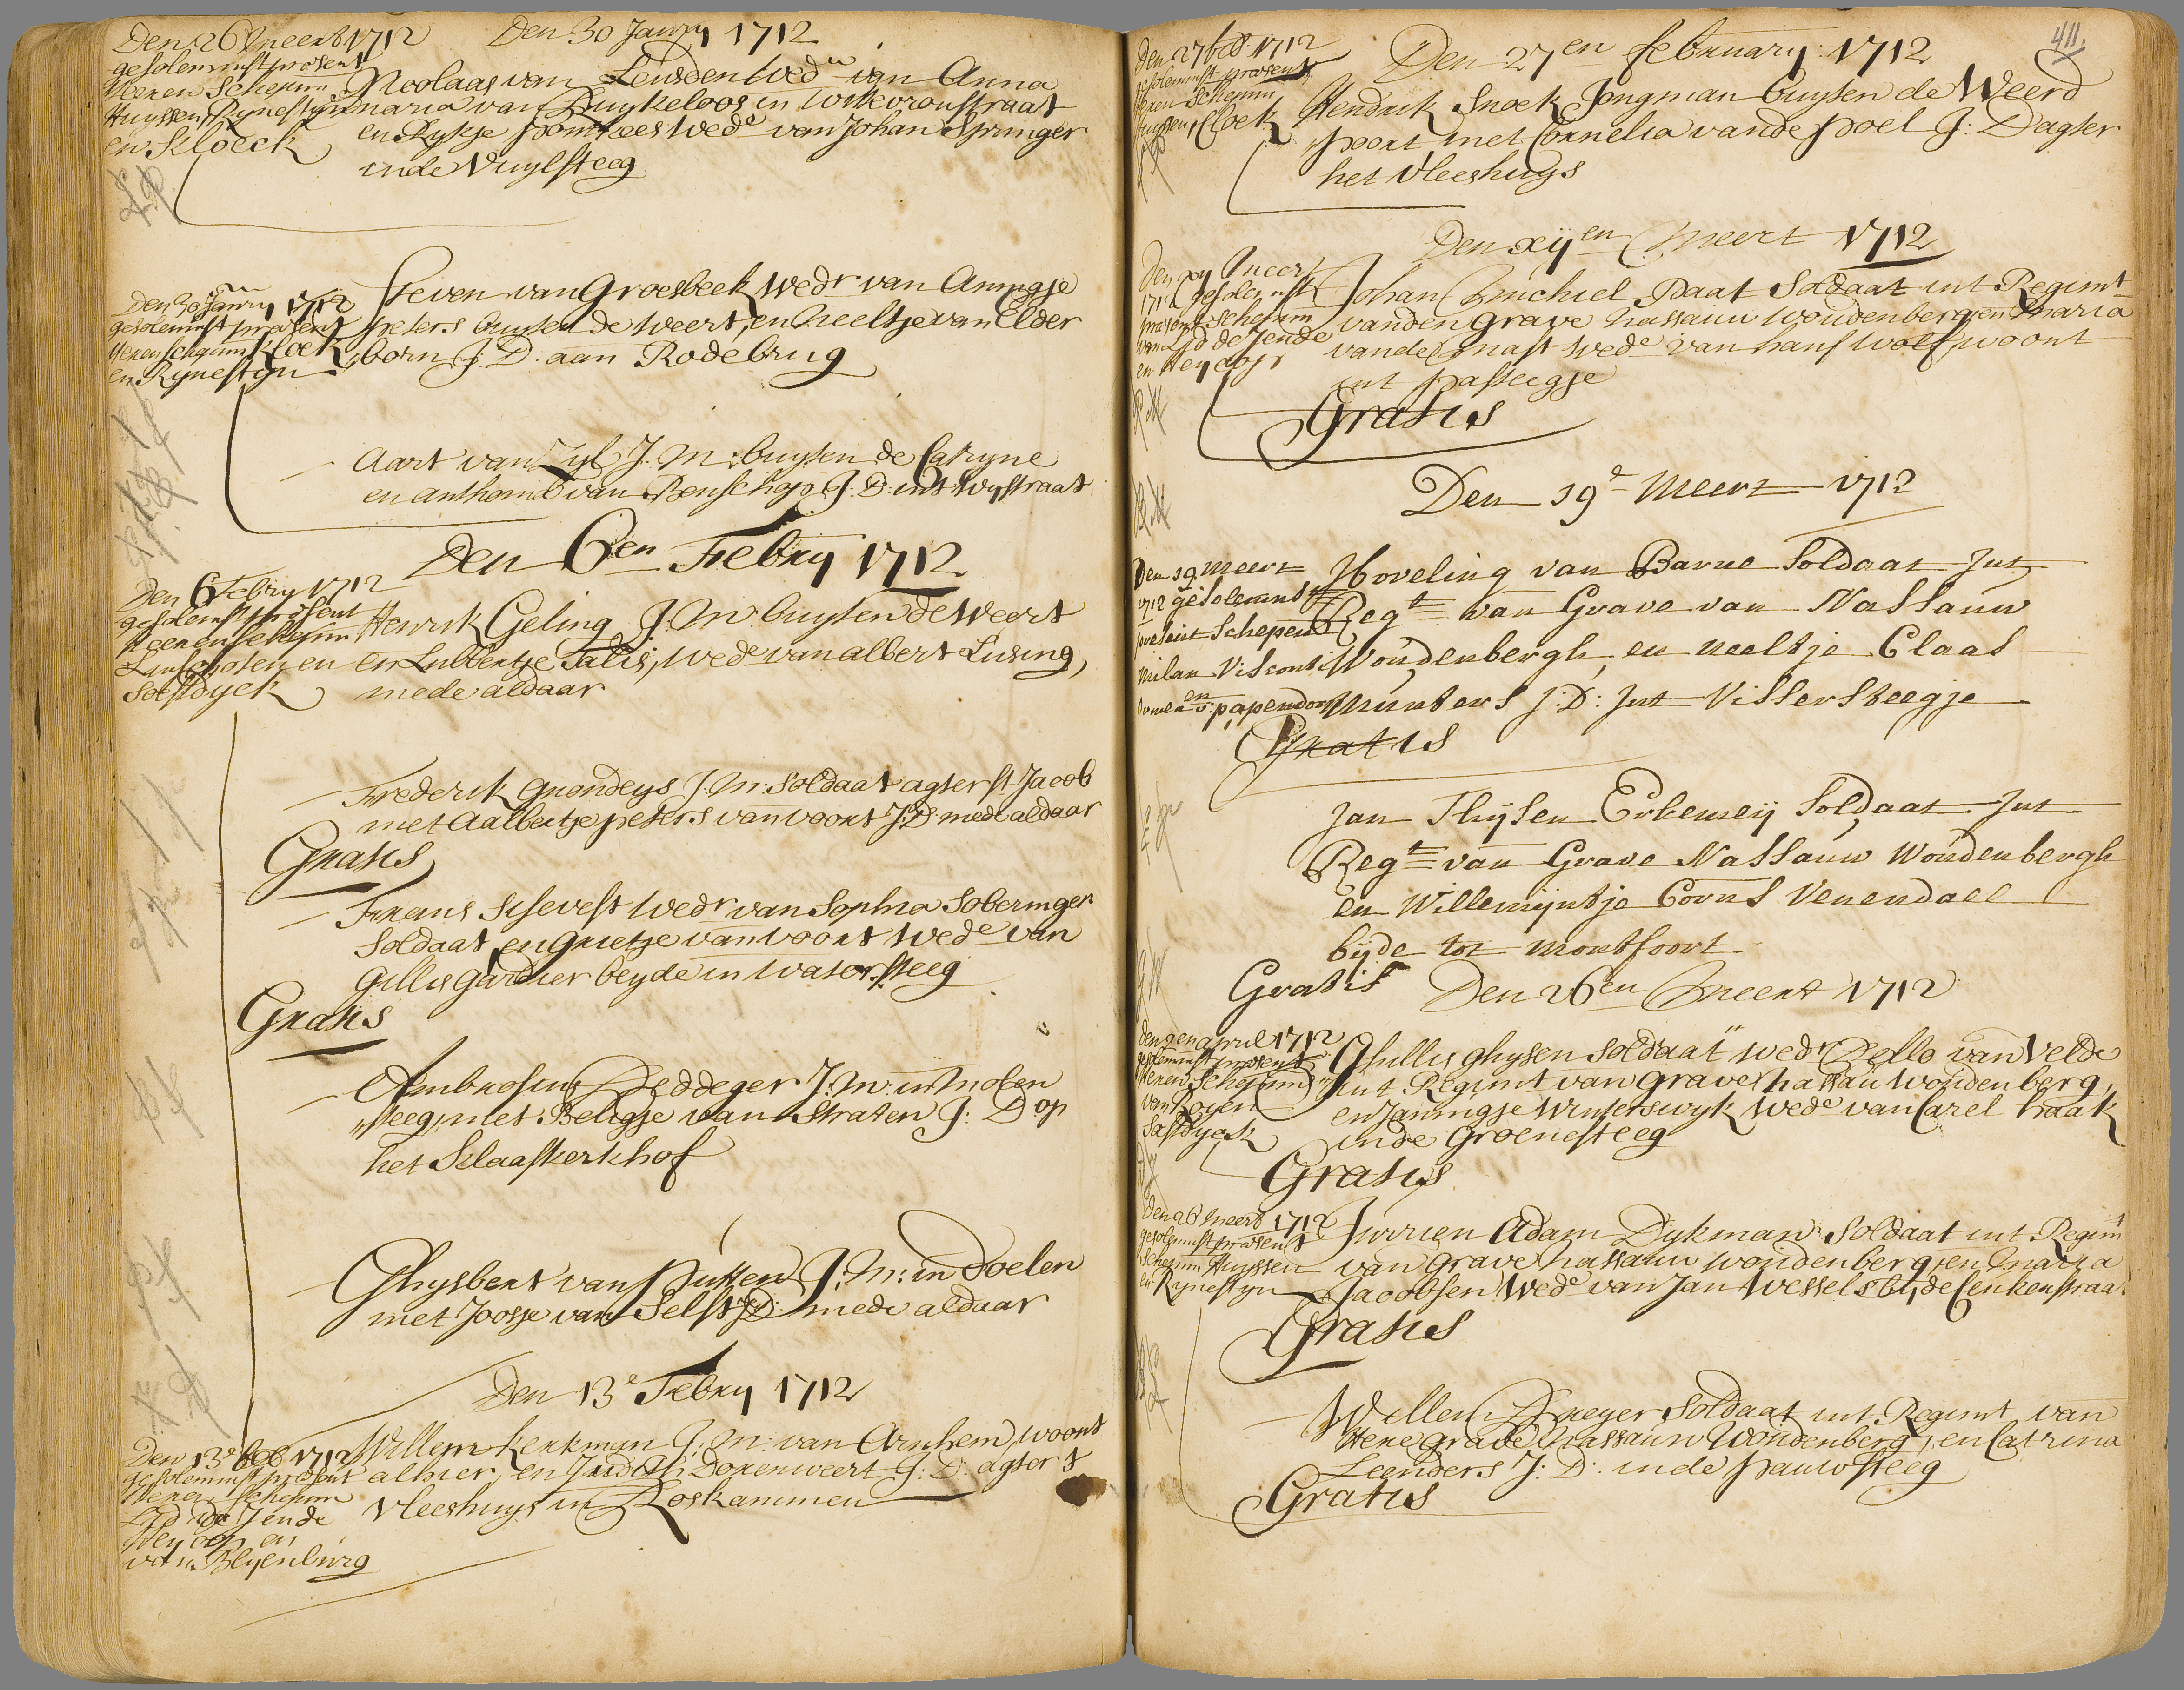 Den 30 Janry 1712
Den 26 Meert 1712
gesolemnist present
Heeren Schepenn
Huyssen, Rynestyn
en Kloeck
Nicolaas van Leusden Wedr van Anna
maria van Duykeloos in Wittevrouwstraat
en Wede van Johan Springer
inde Vuylsteeg
Den 30 Janry 1712
gesolemnist present
Heeren schepenn Kloek
en Rynestyn
Steven van Groesbeek Wedr van Anngje
peters buyten de Weert, en Neeltje van Elder
born J. D. aan Rodebrug
Aart van Zyl J. M: buyten de Catryne
en anthonia van Benschop J: D: int Wystraat
Den 6en Febry 1712
Den 6 Febry 1712
gesolemst present
Heeren schepenn
Linschoten en
Soestdyck
Henrik Geling J. M. buyten de Weert
en Lubbertje Salis, wede van albert Lusing,
mede aldaar
Frederik Grondeys J. M: Soldaat agter st Jacob
met Aalbertje peters van Voort J: D: mede aldaar
Gratis
Frans Schevest Wedr van Sophia Soberinger
Soldaat, en Grietje van Voort Wede van
Gillis Gardier beyde in Watersteeg
Gratis
Ambrosius Deddeger J. M: in Molen
steeg, met Beligje van Straten J: D op
het Klaaskerkhof
Ghysbert van Putten J: M: in Doelen
met Joosje van Selst J: D: mede aldaar
Den 13e Febry 1712
Den 13e feb 1712
gesolemnist present
Heeren schepenn
L.v.d. de Jende
Heycop en
van Blyenburg
Willem Kerkman J: M: van Arnhem, woont
alhier, en Judith Dorenweert J: D: agter t
Vleeshuys in Roskammen
411.
Den 27en february 1712
Den 27 feb 1712
gesolemnist present
Heeren Schepenn
Huyssen, Cloek
Hendrik Snoek Jongman buyten de Weerd
poort, met Cornelia vande poel J: D agter
het Vleeshuys
Den xijen Meert 1712
Den xij Meert
1712 gesolemnist
present schepenn
van L.v.d. de Jende
en Heycop
Johan Michiel Raat Soldaat int Regimt
vanden Grave Nassauw Woudenberg, en Maria
vande Mast wede van hans Wolf, woont
int pasteegje
Gratis
Den 19e Meert 1712
Den 19 Meert
1712 gesolemnst
present Schepenn
Milan Visconti
en v: papendorp
Hoveling van Barne Soldaat Int
Regt van Grave van Nassauw
Woudenbergh, en neeltje Claas
Munters J: D: Int Vissersteegje
Gratis
Jan Thysen Erkemeij Soldaat Int
Regt van Grave Nassauw Woudenbergh
en Willemijntje Corns Venendael
bijde tot montfoort
Gratis
Den 26en Meert 1712
Den 9en april 1712
gesolemnist present
Heeren Schepenn
van Royen
Sastdyck
Ghillis ghysen Soldaat wedr Dello van Velde
int Regimt van Grave Nassau Woudenberg,
en Jannigje Winterswyk Wede van Carel Haak
inde Groenesteeg
Gratis
Den 26 Meert 1712
gesolemnist present
Schepenn Huyssen
en Rynestyn
Jurrien Adam Dykman Soldaat int Regimt
van Grave Nassauw Woudenberg, en Maria
Jacobsen Wede van Jan Wessels by de Lenkenstraat
Gratis
Willem Dreyer Soldaat int Regimt van
Here Grave Nassauw Woudenberg, en Catrina
Leenders J: D: inde pauwsteeg
Gratis